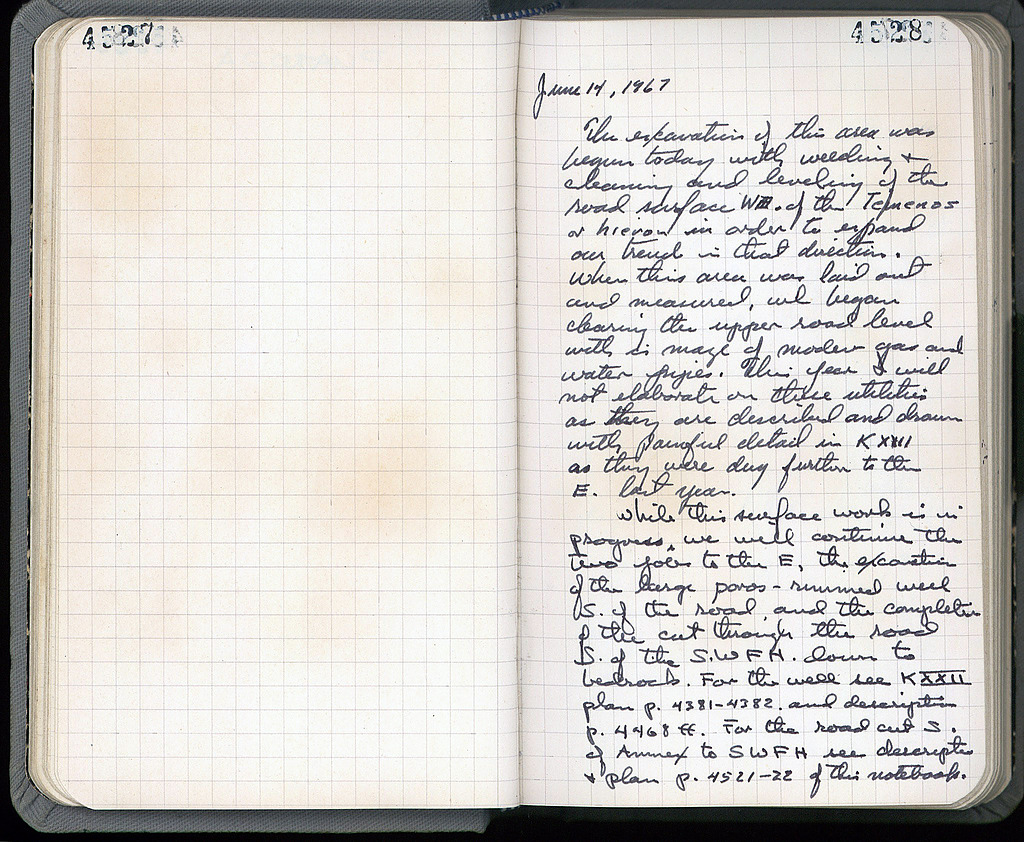 4527
4528
June 14, 1967
The excavation of this area was
begun today with weeding +
cleaning and leveling of the
road surface W. of the Temenos
or hieron in order to expand
our trench in that direction.
When this area was laid out
and measured, we began
clearing the upper road level
with its maze of modern gas and
water pipes. This year I will
not elaborate on these utilities
as they are described and drawn
with painful detail in K XXIII
as they were dug further to the
E. last year.
While this surface work is in
progress, we will continue the
two jobs to the E, the excavation
of the large poros-rimmed well
S. of the road, and the completion
of the cut through the road
S. of the S.W.F.H. down to
bedrock. For the well see K XXII
plan p. 4381-4382. and description
p. 4468 ff. For the road cut S.
of Annex to SWFH see description
+ plan p. 4521-22 of this notebook.